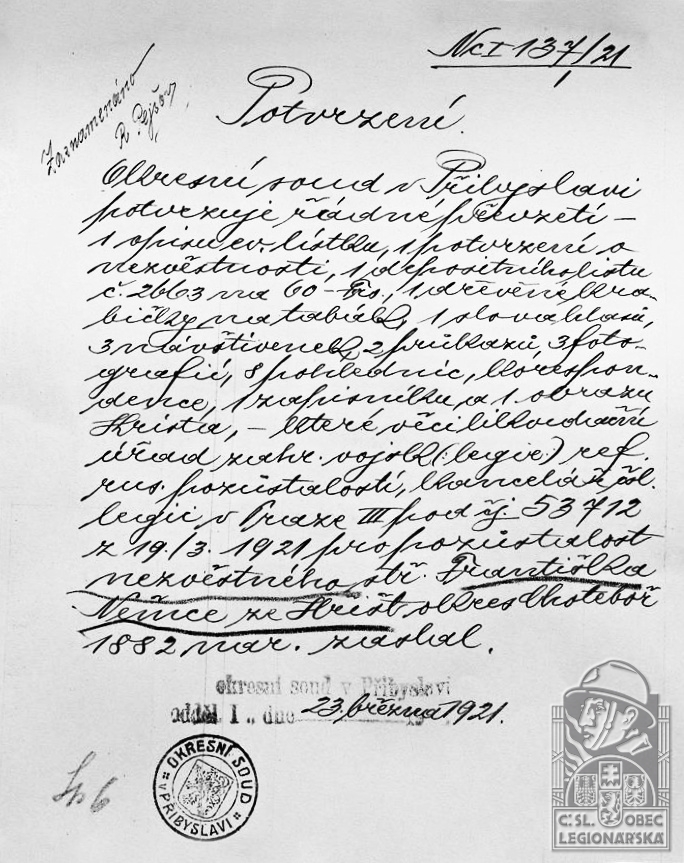 Nc I 137/21
Zaznamenáno
R Pejšov
Potvrzení.
Okresní soud v Přibyslavi
potvrzuje řádné převzetí –
1 opisu ev. lístku, 1 potvrzení o
nezvěstnosti, 1 depositního listu
č. 2663 na 60 – Frs., 1 dřevěné kra-
bičky na tabák, 1 slovahlasů,
3 návštívenek, 2 průkazů, 3 foto-
grafií, 8 pohlednic, korespon-
dence, 1 zápisníku a 1 obrazu
Krista, – které věci likvidační
úřad zahr. vojsk (: legie:) ref.
rus. pozůstalostí, kancelář čsl.
legií v Praze III pod čj. 53712
z 19./3. 1921 pro pozůstalost
nezvěstného stř. Františka
Němce ze Hřišť okres Chotěboř
1882 nar. zaslal.
okresní soud v Přibyslavi
odděl. I., dne 23. března 1921.
OKRESNÍ SOUD
V PŘIBYSLAVI
Č:SL: OBEC
LEGIONÁŘSKÁ